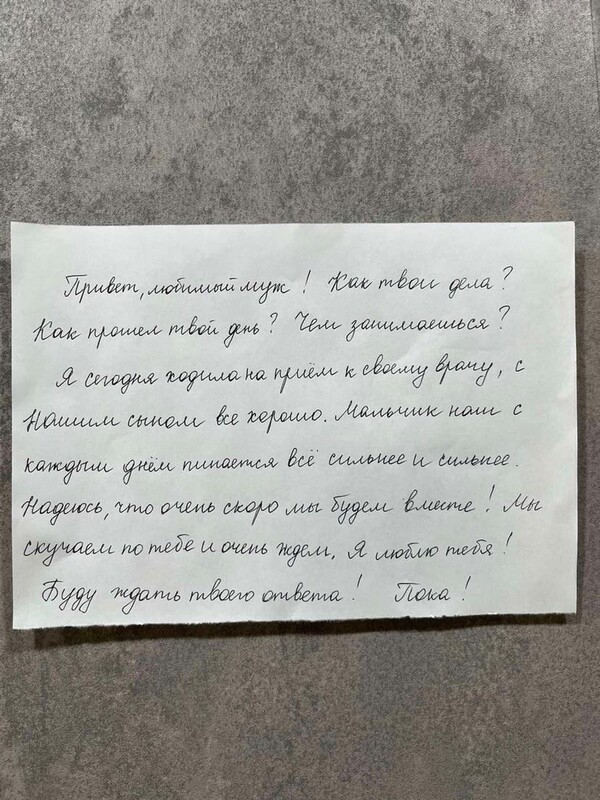 Привет, любимый муж! Как твои дела?
Как прошел твой день? Чем занимаешься?
Я сегодня ходила на приём к своему врачу, с
Нашим сыном все хорошо. Мальчик наш с
каждым днём пинается всё сильнее и сильнее.
Надеюсь, что очень скоро мы будем вместе! Мы
скучаем по тебе и очень ждем. Я люблю тебя!
Буду ждать твоего ответа! Пока!